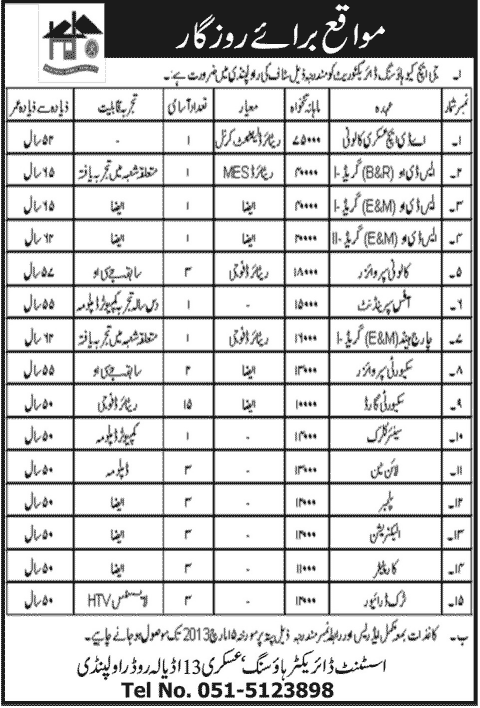 مواقع برائے روزگار
۱۔ جی ایچ کیو ہاؤسنگ ڈائریکٹوریٹ کو مندرجہ ذیل سٹاف کی راولپنڈی میں ضرورت ہے:۔
نمبر شمار عہدہ ماہانہ تنخواہ معیار تعداد آسامی تجربہ قابلیت زیادہ سے زیادہ عمر
۱۔ اے ڈی ایچ عسکری کالونی ۷۵۰۰۰ ریٹائرڈ لیفٹیننٹ کرنل ۱ - ۵۲ سال
۲۔ ایس ڈی او (B&R) گریڈ-I ۲۰۰۰۰ ریٹائرڈ MES ۱ متعلقہ شعبہ میں تجربہ یافتہ ۶۵ سال
۳۔ ایس ڈی او (E&M) گریڈ-I ۲۰۰۰۰ ایضا ۱ ایضا ۶۵ سال
۴۔ ایس ڈی او (E&M) گریڈ-II ۲۰۰۰۰ ایضا ۱ ایضا ۶۲ سال
۵۔ کالونی سپروائزر ۱۸۰۰۰ ریٹائرڈ فوجی ۳ سابقہ جے سی او ۵۷ سال
۶۔ آفس سپرنڈنٹ ۱۵۰۰۰ - ۱ دس سالہ تجربہ کمپیوٹر ڈپلومہ ۵۵ سال
۷۔ چارج ہینڈ (E&M) گریڈ-I ۱۶۰۰۰ ریٹائرڈ فوجی ۱ متعلقہ شعبہ میں تجربہ یافتہ ۶۲ سال
۸۔ سکیورٹی سپروائزر ۱۳۰۰۰ ایضا ۲ سابقہ جے سی او ۵۵ سال
۹۔ سکیورٹی گارڈ ۱۰۰۰۰ ایضا ۱۵ ریٹائرڈ فوجی ۵۰ سال
۱۰۔ سینئر کلرک ۱۳۰۰۰ - ۱ کمپیوٹر ڈپلومہ ۵۰ سال
۱۱۔ لائن مین ۱۳۰۰۰ - ۳ ڈپلومہ ۵۰ سال
۱۲۔ پلمبر ۱۲۰۰۰ - ۳ ایضا ۵۰ سال
۱۳۔ الیکٹریشن ۱۲۰۰۰ - ۳ ایضا ۵۰ سال
۱۴۔ کارپینٹر ۱۱۰۰۰ - ۳ ایضا ۵۰ سال
۱۵۔ ٹرک ڈرائیور ۱۲۰۰۰ - ۳ لائسنس HTV ۵۰ سال
ب۔ کاغذات بمعہ مکمل ایڈریس اور رابطہ نمبر مندرجہ ذیل پتہ پر مورخہ ۱۵ مارچ 2013 تک موصول ہو جانے چاہیے۔
اسسٹنٹ ڈائریکٹر ہاؤسنگ، عسکری 13 اڈیالہ روڈ راولپنڈی
Tel No. 051-5123898